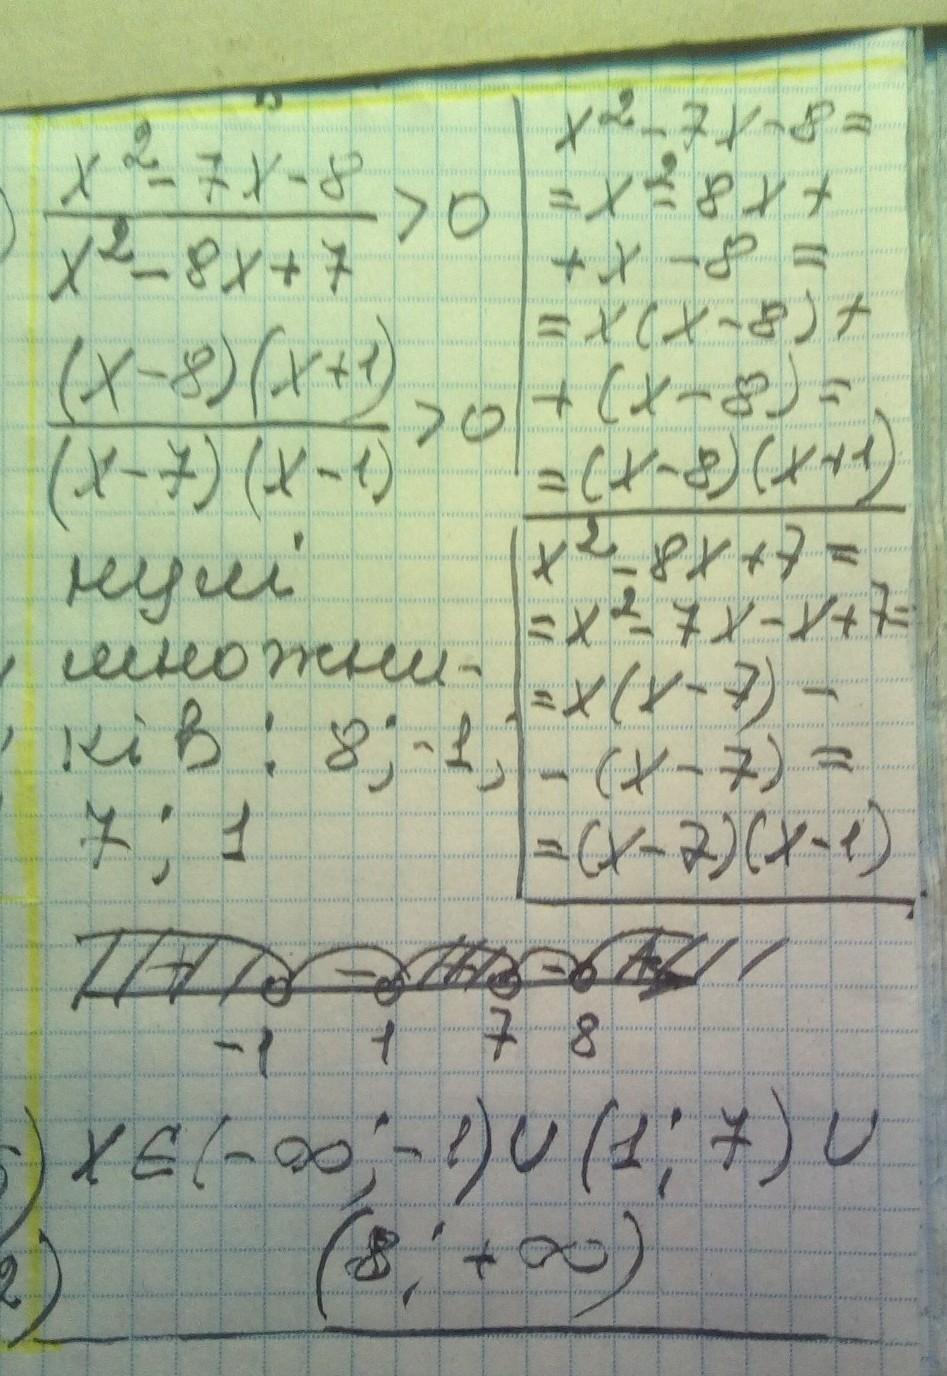 x² - 7x - 8
x² - 8x + 7
> 0
(x-8)(x+1)
(x-7)(x-1)
> 0
нулі
множни-
ків : 8; -1;
7; 1
x² - 7x - 8 =
= x² - 8x +
+ x - 8 =
= x(x-8) +
+ (x-8) =
= (x-8)(x+1)
x² - 8x + 7 =
= x² - 7x - x + 7 =
= x(x-7) -
- (x-7) =
= (x-7)(x-1)
+ - + - +
-1 1 7 8
x∈(-∞; -1)∪(1; 7)∪
(8; +∞)